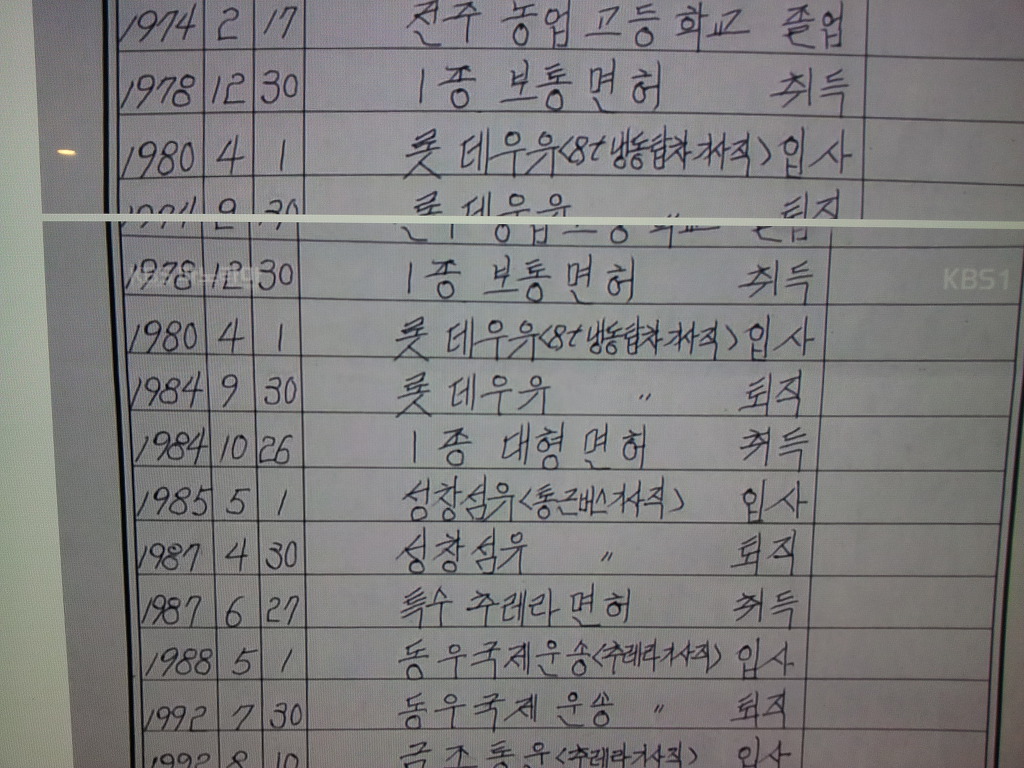 1974 2 17 전주 농업 고등 학교 졸업
1978 12 30 1종 보통면허 취득
1980 4 1 롯데우유<8t냉동탑차기사직> 입사
롯데우유 〃 퇴직
1978 12 30 1종 보통면허 취득
KBS1
1980 4 1 롯데우유<8t냉동탑차기사직> 입사
1984 9 30 롯데우유 〃 퇴직
1984 10 26 1종 대형면허 취득
1985 5 1 성창섬유<통근버스기사직> 입사
1987 4 30 성창섬유 〃 퇴직
1987 6 27 특수 추레라 면허 취득
1988 5 1 동우국제운송<추레라기사직> 입사
1992 7 30 동우국제 운송 〃 퇴직
1992 8 10 통운<추레라기사직> 입사